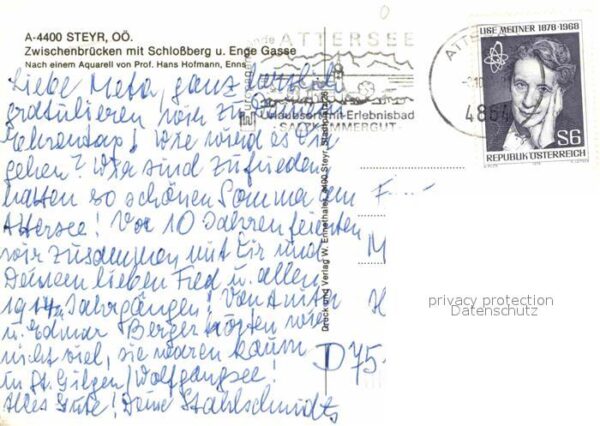 A-4400 STEYR, OÖ.
Zwischenbrücken mit Schloßberg u. Enge Gasse
Nach einem Aquarell von Prof. Hans Hofmann, Enns
Liebe Meta, ganz herzlich
gratulieren wir zum
Ehrentag! Wie wird es Dir
gehen? Wir sind zufrieden
hatten so schönen Sommer am
Attersee! Vor 10 Jahren feierten
wir zusammen mit Dir und
Deinem lieben Fred u. allen
1914. Jahrgängen! Von Anita
u. Edmar Berger hörten wir
nicht viel, sie waren kaum
in St. Gilgen/Wolfgangsee!
Alles Gute! Deine Stahlschmidts
Druck und Verlag W. Ennsthaler, 4400 Steyr, Stadtplatz 26
ATTERSEE
Urlaubsort mit Erlebnisbad
SALZKAMMERGUT
4864
LISE MEITNER 1878-1968
S6
REPUBLIK ÖSTERREICH
F
M
H
D 75
privacy protection
Datenschutz